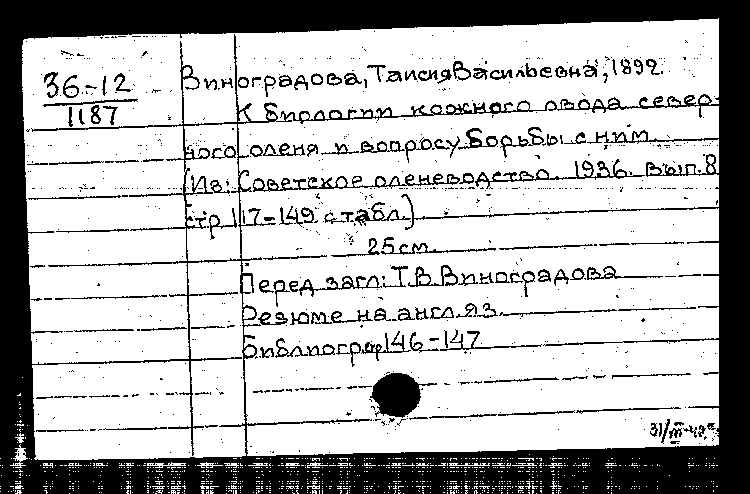 36-12
1187
Виноградова, Таисия Васильевна, 1892
К биологии кожного овода север-
ного оленя и вопросу борьбы с ним.
(Из: Советское оленеводство. 1936. Вып. 8
стр. 117-149 с табл.)
25 см.
Перед загл: Т.В. Виноградова
Резюме на англ. яз.
Библиогр: 146-147
31/III-49.